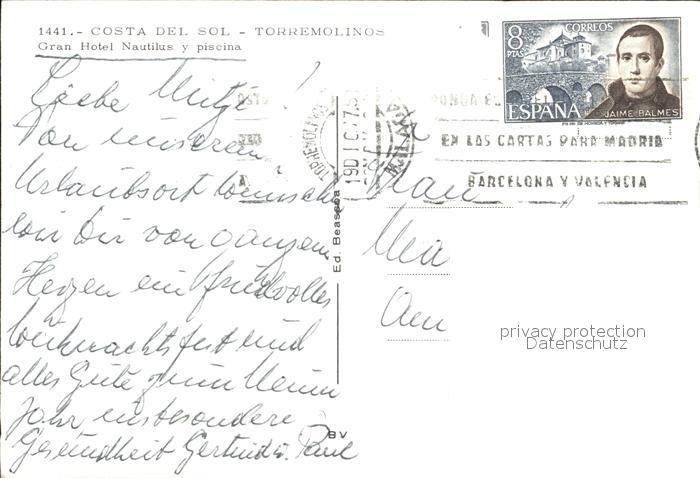 1441.- COSTA DEL SOL - TORREMOLINOS
Gran Hotel Nautilus y piscina
8 PTAS
CORREOS
ESPAÑA
JAIME BALMES
TORREMOLINOS
MALAGA
19 DIC
PONGA EL
EN LAS CARTAS PARA MADRID
BARCELONA Y VALENCIA
Liebe Mitzi!
Von unserem
Urlaubsort wünschen
wir Dir von ganzem
Herzen ein friedvolles
Weihnachtsfest und
alles Gute zum Neuen
Jahr insbesondere
Gesundheit Gertrud u. Paul
Ed. Beascoa
BV
Frau
Ma
privacy protection
Datenschutz